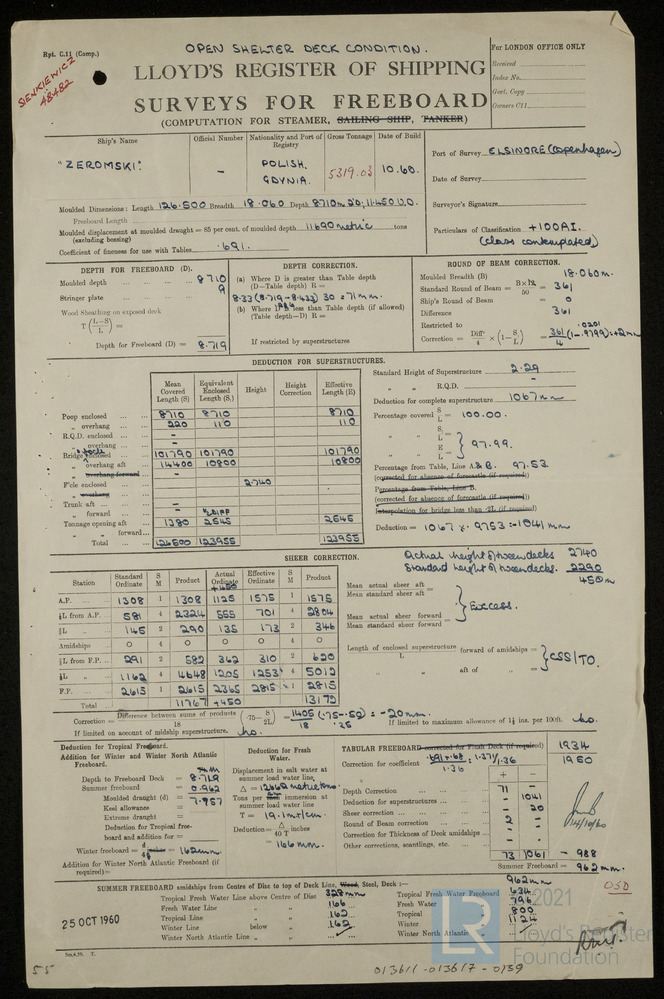 Rpt. C.11 (Comp.)
OPEN SHELTER DECK CONDITION.
SIENKIEWICZ
48482
LLOYD'S REGISTER OF SHIPPING
SURVEYS FOR FREEBOARD
(COMPUTATION FOR STEAMER, SAILING SHIP, TANKER)
For LONDON OFFICE ONLY
Received
Index No.
Govt. Copy
Owners C11
Ship's Name
Official Number
Nationality and Port of Registry
Gross Tonnage
Date of Build
"ZEROMSKI".
-
POLISH.
GDYNIA.
5319.03
10.60.
Port of Survey ELSINORE (Copenhagen)
Date of Survey
Surveyor's Signature
Particulars of Classification +100A1.
(class contemplated)
Moulded Dimensions: Length 126.500 Breadth 18.060 Depth 8710m
Freeboard Length
Moulded displacement at moulded draught = 85 per cent. of moulded depth 11690 metric tons
(excluding bossing)
Coefficient of fineness for use with Tables .691.
DEPTH FOR FREEBOARD (D).
Moulded depth 8710
Stringer plate 9
Wood Sheathing on exposed deck
T (L-S/L) =
Depth for Freeboard (D) = 8.719
DEPTH CORRECTION.
(a) Where D is greater than Table depth
(D-Table depth) R =
8.33 (8.719-8.433) 30 = 71mm.
(b) Where D is less than Table depth (if allowed)
(Table depth-D) R =
If restricted by superstructures
ROUND OF BEAM CORRECTION.
Moulded Breadth (B) 18.060m.
Standard Round of Beam = B×12/50 = 361
Ship's Round of Beam = 0
Difference 361
Restricted to
Correction = Diff/4 × (1-S/L) = 361/4 (1-.9799) = +2mm
.0201
DEDUCTION FOR SUPERSTRUCTURES.
Mean Covered Length (S)
Equivalent Enclosed Length (S,)
Height
Height Correction
Effective Length (E)
Poop enclosed 8710 8710 8710
" overhang 220 110 110
R.Q.D. enclosed -
" overhang -
Bridge enclosed 101790 101790 101790
" overhang aft 14400 10800 10800
" overhang forward
F'cle enclosed 2740
" overhang
Trunk aft -
" forward -
Tonnage opening aft 1380 2545 2545
" " forward
Total 126500 123955 123955
Standard Height of Superstructure 2.29
" " R.Q.D. -
Deduction for complete superstructure 1067mm
Percentage covered S/L = 100.00.
" " S,/L
" " E/L = 97.99.
Percentage from Table, Line A. & B. 97.53
(corrected for absence of forecastle (if required))
Percentage from Table, Line B.
(corrected for absence of forecastle (if required))
Interpolation for bridge less than .2L (if required)
Deduction = 1067 × .9753 = 1041 mm
SHEER CORRECTION.
Actual height of tweendecks 2740
Standard height of tweendecks. 2290
450m
Station
Standard Ordinate
S M
Product
Actual Ordinate
+450
Effective Ordinate
S M
Product
A.P. 1308 1 1308 1125 1575 1 1575
⅙L from A.P. 581 4 2324 555 701 4 2804
⅓L " 145 2 290 135 173 2 346
Amidships 0 4 0 0 0 4 0
⅓L from F.P. 291 2 582 362 310 2 620
⅙L " 1162 4 4648 1205 1253 4 5012
F.P. 2615 1 2615 2365 2815 1 2815
Total 11767 +450 13172
Mean actual sheer aft
Mean standard sheer aft =
Mean actual sheer forward
Mean standard sheer forward =
Excess.
Length of enclosed superstructure forward of amidships =
L
" " aft of " =
CSS/TO.
Correction = Difference between sums of products/18 (.75-S/2L) = 1405/18 (.75-.50) = -20mm.
.25
If limited on account of midship superstructure. No.
If limited to maximum allowance of 1½ ins. per 100ft. No.
Deduction for Tropical Freeboard.
Addition for Winter and Winter North Atlantic Freeboard.
Depth to Freeboard Deck = 8.719
Summer freeboard = 0.962
Moulded draught (d) = 7.757
Keel allowance =
Extreme draught =
Deduction for Tropical freeboard and addition for =
Winter freeboard = d/48 = 162mm
Addition for Winter North Atlantic Freeboard (if required) =
Deduction for Fresh Water.
Displacement in salt water at summer load water line,
Δ = 12662 metric tons
Tons per immersion at summer load water line
T = 19.1mt/cm.
Deduction = Δ/40 T inches
= 166 mm.
TABULAR FREEBOARD corrected for Flush Deck (if required) 1934
Correction for coefficient .691+.68/1.36 = 1.371/1.36 1950
+ -
Depth Correction 71 -
Deduction for superstructures - 1041
Sheer correction - 20
Round of Beam correction 2 -
Correction for Thickness of Deck amidships - -
Other corrections, scantlings, etc. - -
73 1061 - 988
Summer Freeboard = 962mm.
14/10/60
SUMMER FREEBOARD amidships from Centre of Disc to top of Deck Line, Wood, Steel, Deck :— 962mm
OSD
Tropical Fresh Water Line above Centre of Disc 328mm
Fresh Water Line " " 166
Tropical Line " " 162
Winter Line below " 162
Winter North Atlantic Line " "
Tropical Fresh Water Freeboard 634
Fresh Water " 796
Tropical " 800
Winter " 1124
Winter North Atlantic "
25 OCT 1960
5m,4.59. T.
55
013611-013617-0139
LR
2021
Lloyd's Register
Foundation